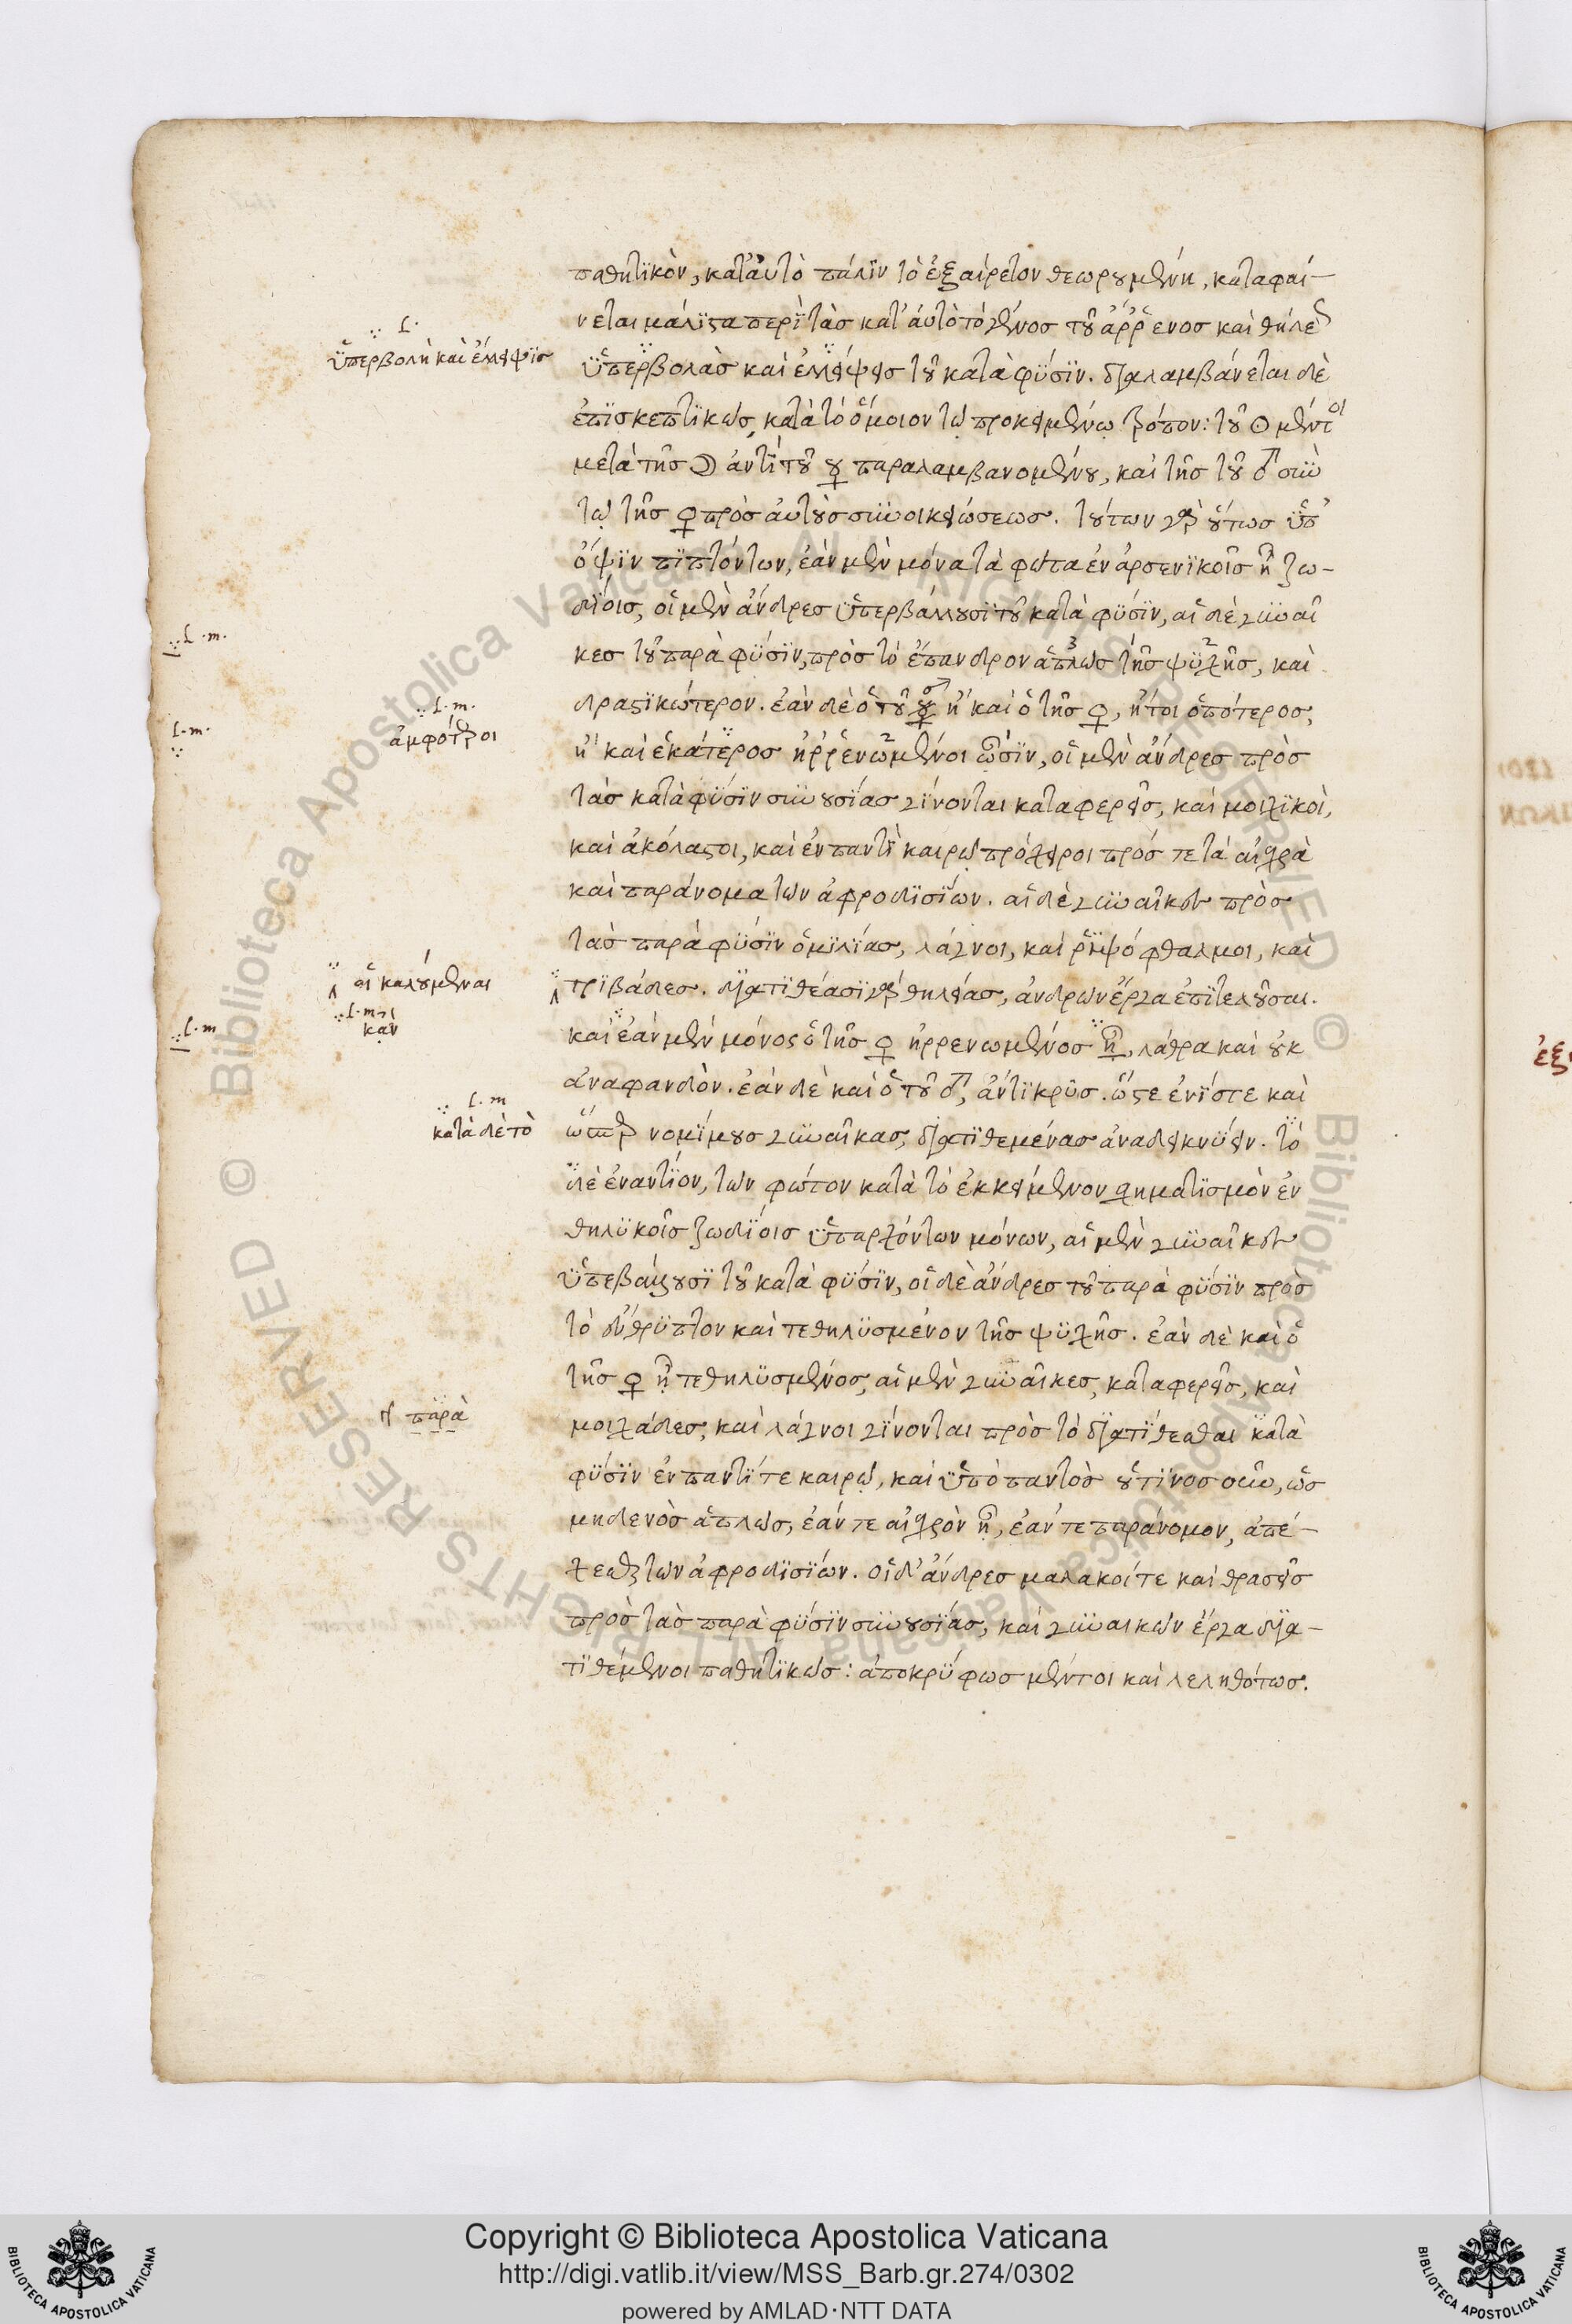 παθητϊκὸν, κατ' ἀυτὸ πάλϊν τὸ ἐξαίρετον θεωρουμένη, καταφαί-
νεται μάλϊστα περὶ τὰσ κατ' ἀυτὸ τὸ γένοσ τοῦ ἄῤῥενοσ καὶ θήλεος
L.
ὑπερβολὴ καὶ ἔλλειψϊσ
ὑπερβολὰσ καὶ ἐλλείψεισ τοῦ κατὰ φύσϊν. διαλαμβάνεται δὲ
ἐπϊσκεπτϊκῶσ, κατὰ τὸ ὅμοιον τῷ προκειμένῳ τρόπον: τοῦ ☉ μέντοι
μετὰ τῆσ ☽ ἀντὶ τοῦ ☿ παραλαμβανομένου, καὶ τῆσ τοῦ ♂ σὺν
τῷ τῆσ ♀ πρὸσ ἀυτοὺσ συνοικειώσεωσ. τούτων γὰρ οὕτωσ ὑπ'
ὄψϊν πϊπτόντων, ἐὰν μὲν μόνα τὰ φῶτα ἐν ἀρσενϊκοῖσ ἦ ζω-
δϊόισ, οἱ μὲν ἄνδρεσ ὑπερβάλλουσϊ τοῦ κατὰ φύσϊν, αἱ δὲ γυναῖ
L.m.
κεσ τοῦ παρὰ φύσϊν, πρὸσ τὸ ἔπανδρον ἁπλῶσ τῆσ ψϋχῆσ, καὶ
δραστϊκώτερον. ἐὰν δὲ ὁ τοῦ ♂ ἢ καὶ ὁ τῆσ ♀, ἤτοι ὁπότεροσ,
L.m.
L.m.
ἀμφότεροι
ἢ καὶ ἑκάτεροσ ἠῤῥενωμένοι ὦσϊν, οἱ μὲν ἄνδρεσ πρὸσ
τὰσ κατὰ φύσϊν συνουσίασ γϊνονται καταφερεῖσ, καὶ μοιχϊκοὶ,
καὶ ἀκόλαστοι, καὶ ἐν παντὶ καιρῷ πρόχειροι πρόσ τε τὰ αἰσχρὰ
καὶ παράνομα τῶν ἀφροδϊσϊων. αἱ δὲ γυναῖκεσ πρὸσ
τὰσ παρὰ φύσϊν ὁμϊλϊασ, λάγνοι, καὶ ῥϊψόφθαλμοι, καὶ
οἱ καλούμεναι
τρϊβάδεσ. διατϊθέασϊ γὰρ θηλείασ, ἀνδρῶν ἔργα ἐπϊτελοῦσαι.
L.m.
κἂν
L.m
καὶ ἐὰν μὲν μόνος ὁ τῆσ ♀ ἠρρενωμένοσ ἦ, λάθρα καὶ οὐκ
ἀναφανδόν. ἐὰν δὲ καὶ ὁ τοῦ ♂, ἄντϊκρϋσ. ὥστε ἐνϊότε καὶ
L.m
κατὰ δὲ τὸ
ὥσπερ νομϊμουσ γυναῖκασ, διατϊθεμένασ ἀναδεικνϋειν. τὸ
δὲ ἐναντϊον, τῶν φώτον κατὰ τὸ ἐκκείμενον σχηματϊσμὸν ἐν
θηλϋκοῖσ ζωδϊοισ ὑπαρχόντων μόνων, αἱ μὲν γυναῖκεσ
ὑπεβάλλουσϊ τοῦ κατὰ φύσϊν, οἱ δὲ ἄνδρεσ τοῦ παρὰ φύσϊν πρὸσ
τὸ ἔυθρϋπτον καὶ τεθηλϋσμένον τῆσ ψϋχῆσ. ἐὰν δὲ καὶ ὁ
τῆσ ♀ ἦ τεθηλϋσμένοσ, αἱ μὲν γυναῖκεσ, καταφερεῖσ, καὶ
παρὰ
μοιχάδεσ, καὶ λάγνοι γϊνονται πρὸσ τὸ διατϊθεσθαι κατὰ
φύσϊν ἐν παντϊ τε καιρῷ, καὶ ὑπὸ παντὸσ οὗτϊνοσ οὖν, ὡσ
μηδενὸσ ἁπλῶσ, ἐάν τε αἰσχρὸν ἦ, ἐάν τε παράνομον, ἀπέ-
χεσθαι τῶν ἀφροδϊσϊων. οἱ δ' ἄνδρεσ μαλακοί τε καὶ θρασεῖσ
πρὸσ τὰσ παρὰ φύσϊν συνουσϊασ, καὶ γυναικῶν ἔργα δια-
τϊθέμενοι παθητϊκῶσ: ἀποκρϋφωσ μέντοι καὶ λεληθότωσ.
Copyright © Biblioteca Apostolica Vaticana
http://digi.vatlib.it/view/MSS_Barb.gr.274/0302
powered by AMLAD·NTT DATA